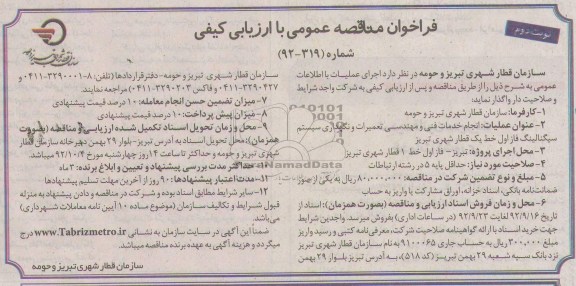 نوبت دوم
فراخوان مناقصه عمومی با ارزیابی کیفی
شماره (۳۱۹-۹۲)
سازمان قطار شهری تبریز و حومه در نظر دارد اجرای عملیات با اطلاعات
عمومی به شرح ذیل را از طریق مناقصه و پس از ارزیابی کیفی به شرکت واجد شرایط
و صلاحیت دار واگذار نماید:
۱-کارفرما: سازمان قطار شهری تبریز و حومه
۲-عنوان عملیات: انجام خدمات فنی و مهندسی تعمیرات و نگهداری سیستم
سیگنالینگ فاز اول خط یک قطار شهری تبریز
۳-محل اجرای پروژه: تبریز- فاز اول خط ۱ قطار شهری تبریز
۴-صلاحیت مورد نیاز: حداقل پایه ۵ در رشته ارتباطات
۵-مبلغ و نوع تضمین شرکت در مناقصه: ۸۰,۰۰۰,۰۰۰ ریال به یکی از صور
ضمانت‌نامه بانکی، اسناد خزانه، اوراق مشارکت یا واریز به حساب
۶-محل و زمان فروش اسناد ارزیابی و مناقصه (بصورت همزمان): اسناد از
تاریخ ۹۲/۹/۱۶ لغایت ۹۲/۹/۲۳ (در ساعات اداری) بفروش میرسد. واجدین شرایط
جهت خرید اسناد با ارائه گواهینامه صلاحیت شرکت، معرفی‌نامه کتبی و رسید واریز
مبلغ ۳۰۰,۰۰۰ ریال به حساب جاری ۹۱۰۰۰۶۵ به نام سازمان قطار شهری تبریز
نزد بانک سپه شعبه ۲۹ بهمن تبریز (کد ۵۱۸)، به آدرس تبریز بلوار ۲۹ بهمن
سازمان قطار شهری تبریز و حومه-دفتر قراردادها (تلفن: ۸-۳۲۹۰۰۰۱-۰۴۱۱ و
۳۲۹۰۴۲۷-۰۴۱۱ و فاکس ۳۲۹۰۲۰۳-۰۴۱۱) مراجعه نمایند.
۷-میزان تضمین حسن انجام معامله: ۱۰ درصد قیمت پیشنهادی
۸-میزان پیش پرداخت: ۱۰ درصد قیمت پیشنهادی
۹-محل و زمان تحویل اسناد تکمیل شده ارزیابی و مناقصه (بصورت
همزمان): محل تحویل اسناد به آدرس تبریز- بلوار ۲۹ بهمن دبیرخانه سازمان قطار
شهری تبریز و حومه و حداکثر تا ساعت ۱۴ روز چهارشنبه مورخ ۹۲/۱۰/۴ میباشد.
۱۰- حداکثر مدت بررسی پیشنهاد و تعیین و ابلاغ برنده: ۳ ماه
۱۱-مدت اعتبار پیشنهادها: ۹۰ روز از آخرین مهلت تسلیم پیشنهادها
۱۲-سایر شرایط مطابق اسناد بوده و شرکت در مناقصه و دادن پیشنهاد به منزله
قبول شرایط و تکالیف سازمان (موضوع ماده ۱۰ آیین نامه معاملات شهرداری)
می‌باشد.
ضمناً این آگهی در سایت سازمان به نشانی www.Tabrizmetro.ir درج
میگردد و هزینه آگهی به عهده برنده مناقصه میباشد.
سازمان قطار شهری تبریز و حومه